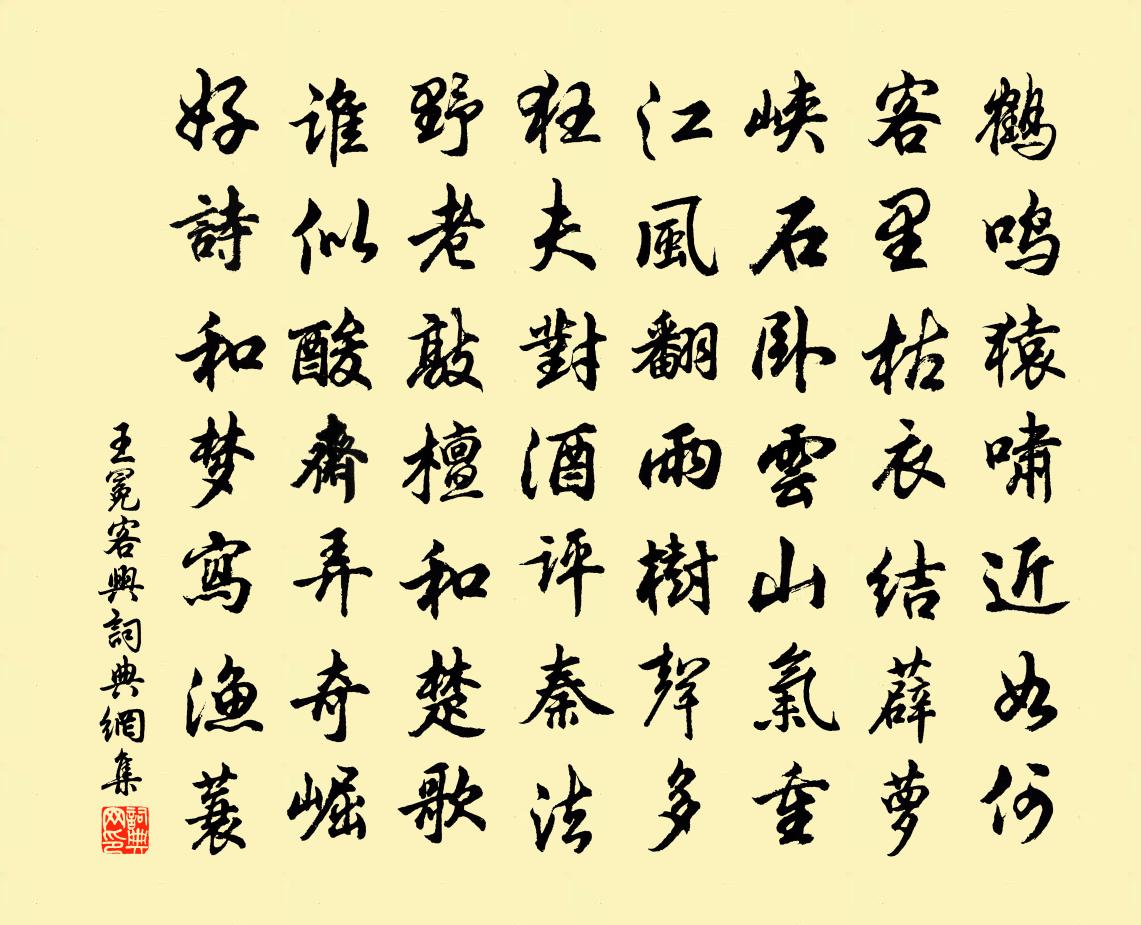 鹤鸣猿啸近如何
客里枯衣结薜萝
峡石卧雲山氣重
江風翻雨樹聲多
狂夫對酒評秦法
野老敲檀和楚歌
誰似酸齋弄奇崛
好詩和梦寫漁蓑
王冕客興詞典網集
詞典网印